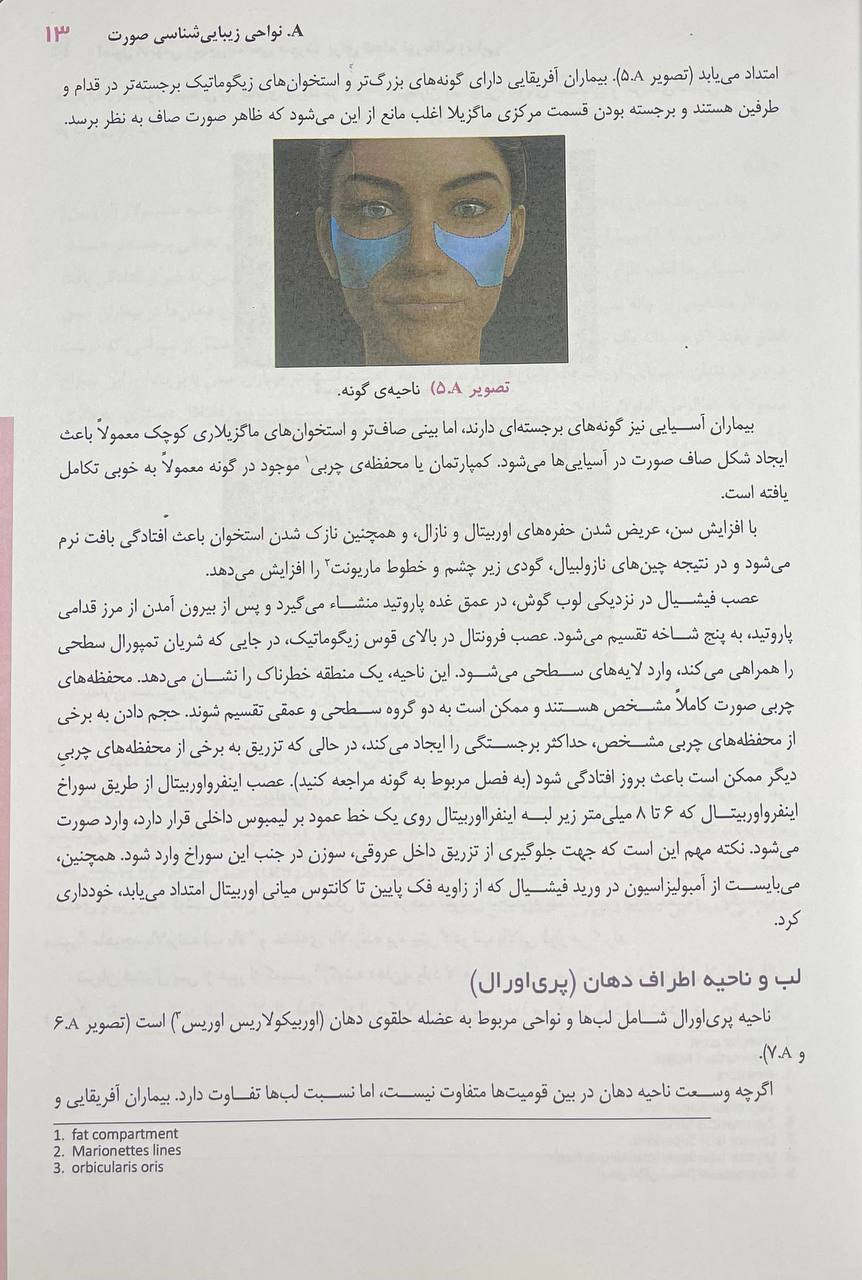 A. نواحی زیبایی‌شناسی صورت ۱۳
امتداد می‌یابد (تصویر ۵.A). بیماران آفریقایی دارای گونه‌های بزرگ‌تر و استخوان‌های زیگوماتیک برجسته‌تر در قدام و
طرفین هستند و برجسته بودن قسمت مرکزی ماگزیلا اغلب مانع از این می‌شود که ظاهر صورت صاف به نظر برسد.
تصویر ۵.A) ناحیه‌ی گونه.
بیماران آسیایی نیز گونه‌های برجسته‌ای دارند، اما بینی صاف‌تر و استخوان‌های ماگزیلاری کوچک معمولاً باعث
ایجاد شکل صاف صورت در آسیایی‌ها می‌شود. کمپارتمان یا محفظه‌ی چربی۱ موجود در گونه معمولاً به خوبی تکامل
یافته است.
با افزایش سن، عریض شدن حفره‌های اوربیتال و نازال، و همچنین نازک شدن استخوان باعث افتادگی بافت نرم
می‌شود و در نتیجه چین‌های نازولبیال، گودی زیر چشم و خطوط ماریونت۲ را افزایش می‌دهد.
عصب فیشیال در نزدیکی لوب گوش، در عمق غده پاروتید منشاء می‌گیرد و پس از بیرون آمدن از مرز قدامی
پاروتید، به پنج شاخه تقسیم می‌شود. عصب فرونتال در بالای قوس زیگوماتیک، در جایی که شریان تمپورال سطحی
را همراهی می‌کند، وارد لایه‌های سطحی می‌شود. این ناحیه، یک منطقه خطرناک را نشان می‌دهد. محفظه‌های
چربی صورت کاملاً مشخص هستند و ممکن است به دو گروه سطحی و عمقی تقسیم شوند. حجم دادن به برخی
از محفظه‌های چربی مشخص، حداکثر برجستگی را ایجاد می‌کند، در حالی که تزریق به برخی از محفظه‌های چربیِ
دیگر ممکن است باعث بروز افتادگی شود (به فصل مربوط به گونه مراجعه کنید). عصب اینفرواوربیتال از طریق سوراخ
اینفرواوربیتال که ۶ تا ۸ میلی‌متر زیر لبه اینفرااوربیتال روی یک خط عمود بر لیمبوس داخلی قرار دارد، وارد صورت
می‌شود. نکته مهم این است که جهت جلوگیری از تزریق داخل عروقی، سوزن در جنب این سوراخ وارد شود. همچنین،
می‌بایست از آمبولیزاسیون در ورید فیشیال که از زاویه فک پایین تا کانتوس میانی اوربیتال امتداد می‌یابد، خودداری
کرد.
لب و ناحیه اطراف دهان (پری‌اورال)
ناحیه پری‌اورال شامل لب‌ها و نواحی مربوط به عضله حلقوی دهان (اوربیکولاریس اوریس۳) است (تصویر ۶.A
و ۷.A).
اگرچه وسعت ناحیه دهان در بین قومیت‌ها متفاوت نیست، اما نسبت لب‌ها تفاوت دارد. بیماران آفریقایی و
1. fat compartment
2. Marionettes lines
3. orbicularis oris